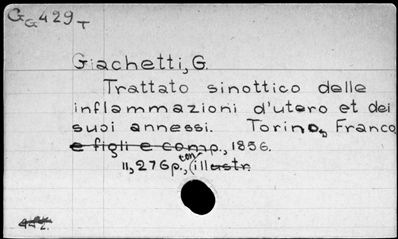 GG429T
Giachetti, G.
Trattato sinottico delle
inflammazioni d'utero et dei
suoi annessi. Torino, Franco
e figli e comp., 1856.
11, 276p., (ill